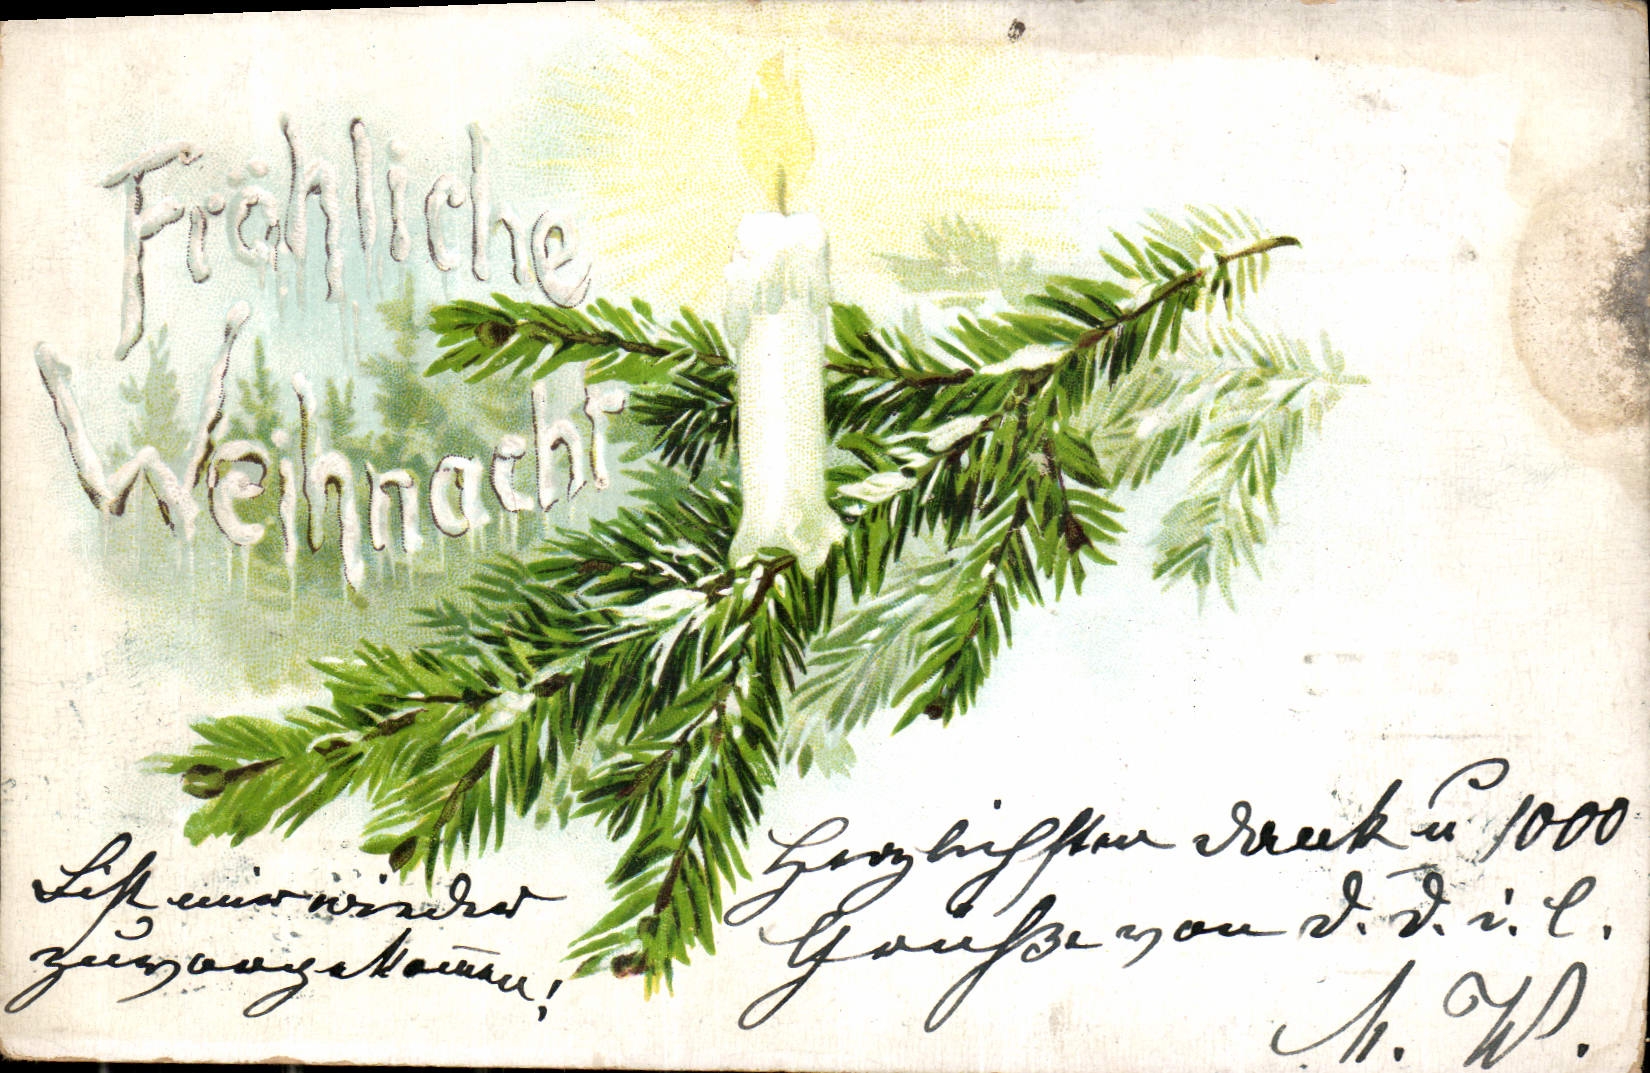 Fröhliche
Weihnacht
Bist mir wieder
zuvorgekommen!
Herzlichsten Dank u 1000
Grüße von d. d. i. l.
A. W.